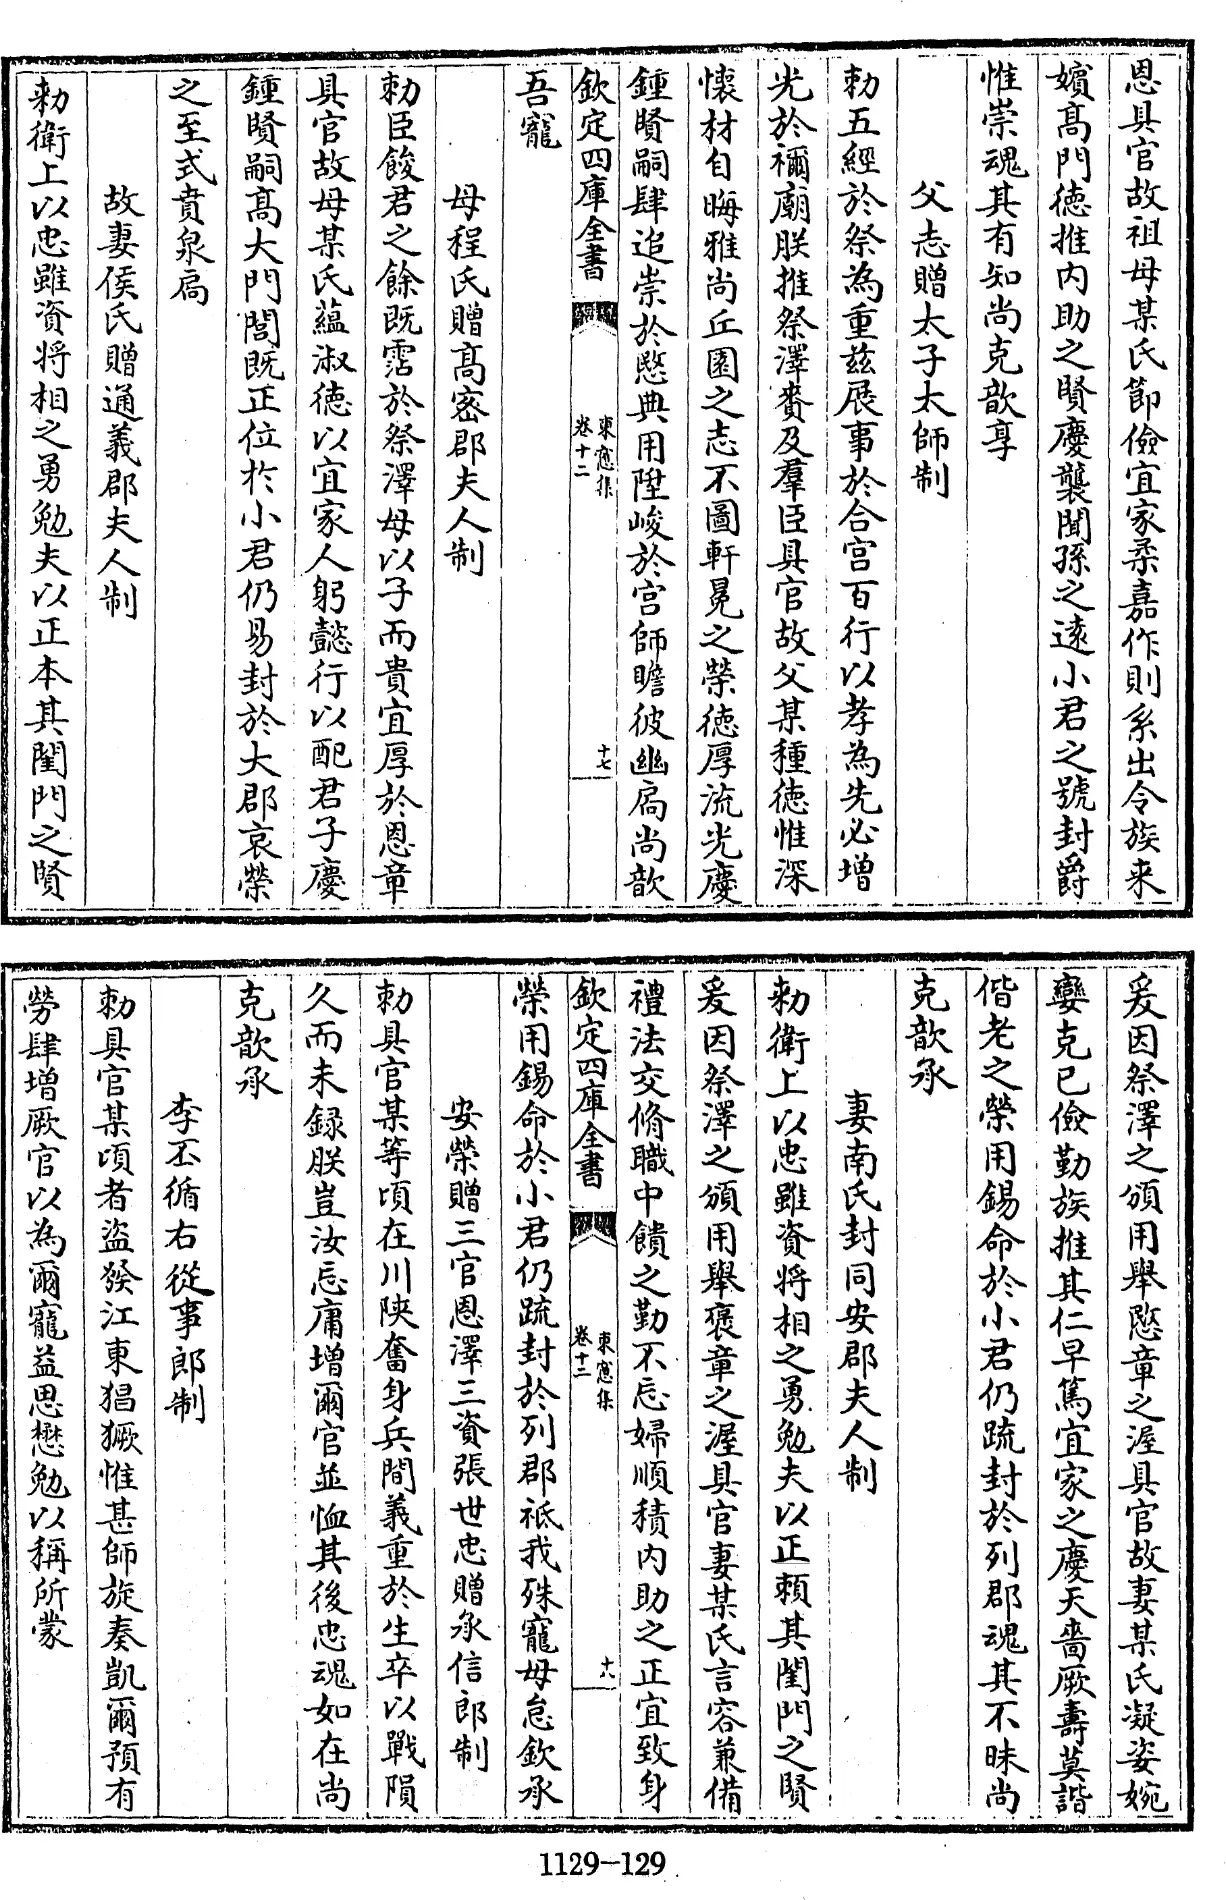 恩具官故祖母某氏節儉宜家柔嘉作則系出令族来
嬪髙門徳推内助之賢慶襲聞孫之逺小君之號封爵
惟崇魂其有知尚克歆享
父志贈太子太師制
勅五經於祭為重兹展事於合宫百行以孝為先必增
光於禰廟朕推祭澤賚及羣臣具官故父某種徳惟深
懐材自晦雅尚丘園之志不圖軒冕之榮徳厚流光慶
鍾賢嗣肆追崇於愍典用陞峻於宫師瞻彼幽扃尚歆
欽定四庫全書
東窻集
卷十二
十七
吾寵
母程氏贈髙密郡夫人制
勅臣餕君之餘既霑於祭澤母以子而貴宜厚於恩章
具官故母某氏藴淑徳以宜家人躬懿行以配君子慶
鍾賢嗣髙大門閭既正位於小君仍易封於大郡哀榮
之至式賁泉扃
故妻侯氏贈通義郡夫人制
勅衛上以忠雖資将相之勇勉夫以正本其閨門之賢
爰因祭澤之頒用舉愍章之渥具官故妻某氏凝姿婉
孌克已儉勤族推其仁早篤宜家之慶天嗇厥壽莫諧
偕老之榮用錫命於小君仍疏封於列郡魂其不昧尚
克歆承
妻南氏封同安郡夫人制
勅衛上以忠雖資將相之勇勉夫以正頼其閨門之賢
爰因祭澤之頒用舉褒章之渥具官妻某氏言容兼備
禮法交脩職中饋之勤不忘婦順積内助之正宜致身
欽定四庫全書
東窻集
卷十二
十八
榮用錫命於小君仍疏封於列郡祗我殊寵毋怠欽承
安榮贈三官恩澤三資張世忠贈承信郎制
勅具官某等頃在川陜奮身兵間義重於生卒以戰隕
久而未録朕豈汝忘庸增爾官並恤其後忠魂如在尚
克歆承
李丕循右從事郎制
勅具官某頃者盜發江東猖獗惟甚師旋奏凱爾預有
勞肆增厥官以為爾寵益思懋勉以稱所蒙
1129-129